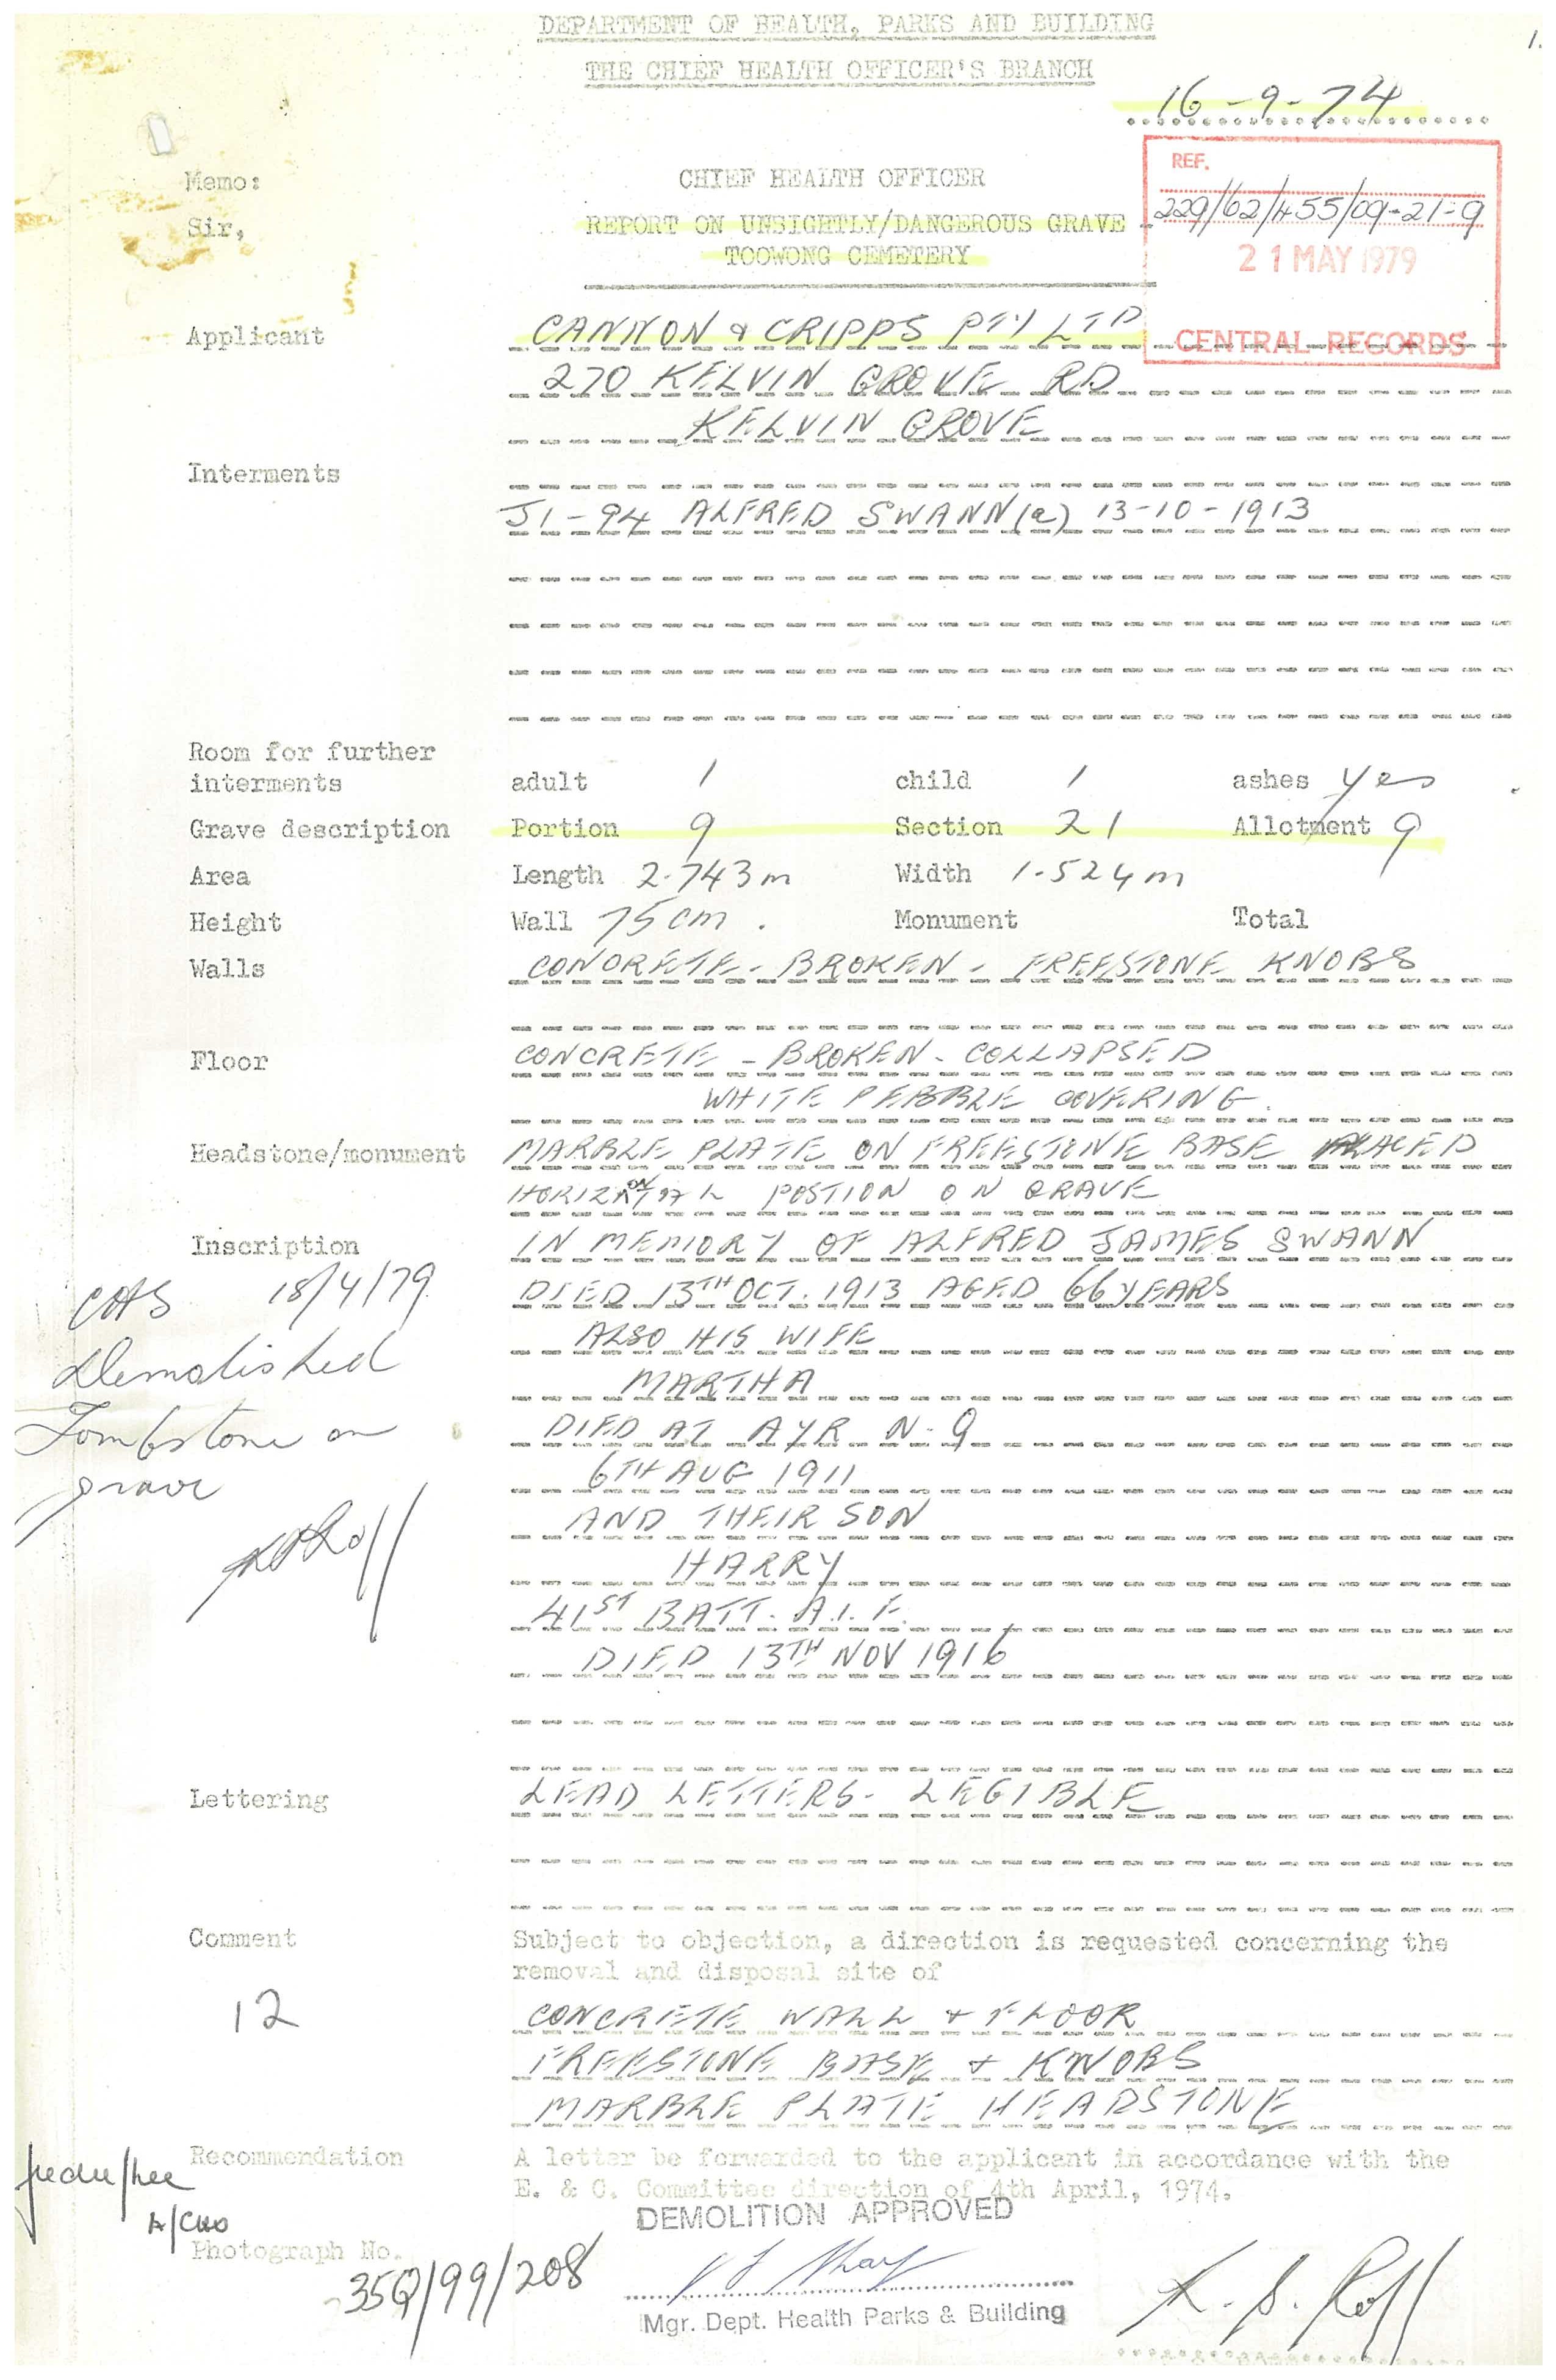 DEPARTMENT OF HEALTH, PARKS AND BUILDING
THE CHIEF HEALTH OFFICER'S BRANCH
1.
16-9-74
Memo:
Sir,
CHIEF HEALTH OFFICER
REPORT ON UNSIGHTLY/DANGEROUS GRAVE -
TOOWONG CEMETERY
REF.
229/62/455/09-21-9
21 MAY 1979
CENTRAL RECORDS
Applicant CANNON & CRIPPS PTY LTD
270 KELVIN GROVE RD
KELVIN GROVE
Interments
J1-94 ALFRED SWANN (a) 13-10-1913
Room for further
interments adult 1 child 1 ashes yes
Grave description Portion 9 Section 21 Allotment 9
Area Length 2.743m Width 1.524m
Height Wall 75cm. Monument Total
Walls CONCRETE - BROKEN - FREESTONE KNOBS
Floor CONCRETE - BROKEN - COLLAPSED
WHITE PEBBLE COVERING.
Headstone/monument MARBLE PLATE ON FREESTONE BASE PLACED
HORIZONTAL POSTION ON GRAVE
Inscription IN MEMORY OF ALFRED JAMES SWANN
DIED 13TH OCT. 1913 AGED 66 YEARS
ALSO HIS WIFE
MARTHA
DIED AT AYR N.Q
6TH AUG 1911
AND THEIR SON
HARRY
41ST BATT. A.I.F.
DIED 13TH NOV 1916
18/4/79.
Demolished
Tombstone on
grave
Lettering LEAD LETTERS - LEGIBLE
Comment Subject to objection, a direction is requested concerning the
removal and disposal site of
12
CONCRETE WALL & FLOOR
FREESTONE BASE & KNOBS
MARBLE PLATE HEADSTONE
Recommendation A letter be forwarded to the applicant in accordance with the
E. & C. Committee direction of 4th April, 1974.
A/CHO
DEMOLITION APPROVED
Photograph No.
35Q/99/208
Mgr. Dept. Health Parks & Building